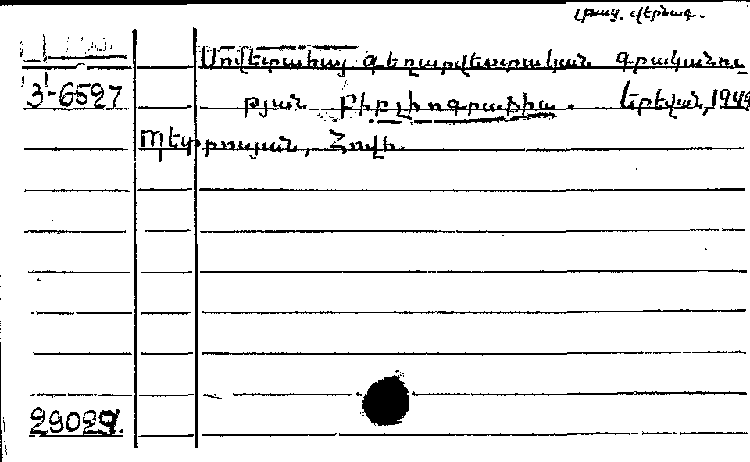 լրաց. վերնագ.
Սովետահայ գեղարվեստական գրականու
3-6527 թյան բիբլիոգրաֆիա. Երեվան, 1949
Պետրոսյան, Հովհ.
29027.